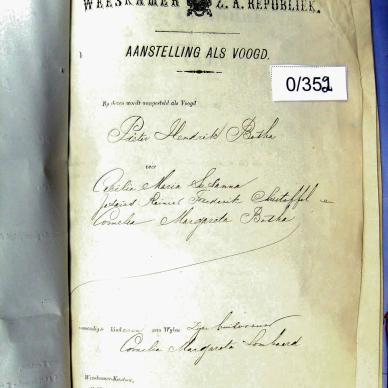 WEESKAMER Z. A. REPUBLIEK.
AANSTELLING ALS VOOGD.
0/352
By dezen wordt aangesteld als Voogd
Pieter Hendrik Botha
voor
Cecilia Maria Susanna
Reinier Frederik Christoffel e
Cornelia Margareta Botha
kinderen van Wylen
Cornelia Margareta Lombaard
Weeskamer-Kantoor,